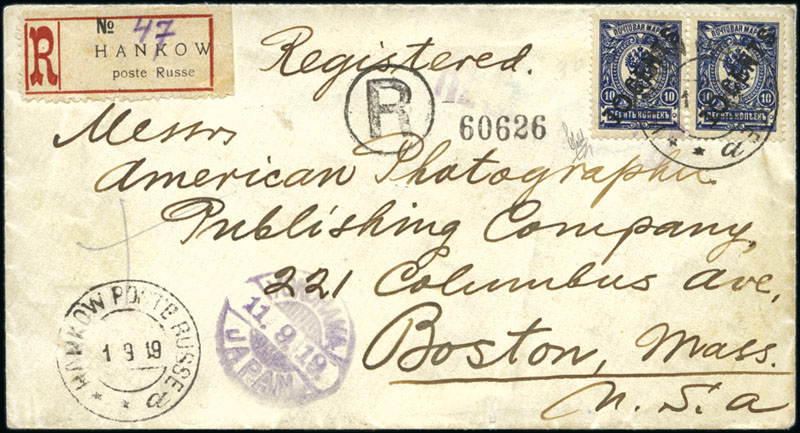 R
№ 47
HANKOW
poste Russe
Registered.
R
60626
ПОЧТОВАЯ МАРКА
10 10
ДЕСЯТЬ КОПѢЕКЪ
10 CENTS
ПОЧТОВАЯ МАРКА
10 10
ДЕСЯТЬ КОПѢЕКЪ
10 CENTS
Messrs
American Photographic
Publishing Company,
221 Columbus Ave,
Boston, Mass.
U. S. a
HANKOW POSTE RUSSE
1 9 19
a
11.9.19
JAPAN
1
a